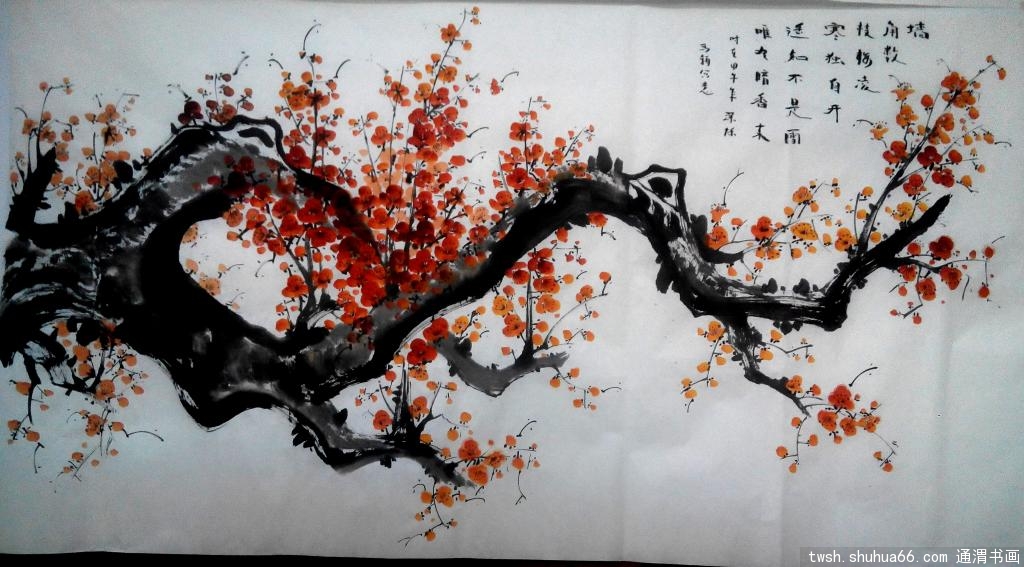 墙
角数
枝梅凌
寒独自开
遥知不是雪
唯有暗香来
时在甲午年 深秋
写意
twsh.shuhua66.com 通渭书画